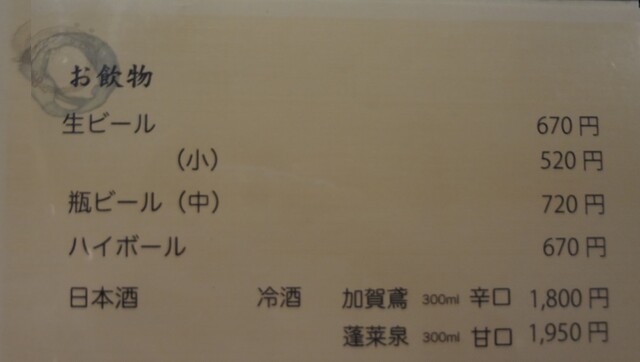 お飲物
生ビール 670円
（小） 520円
瓶ビール（中） 720円
ハイボール 670円
日本酒 冷酒 加賀鳶 300ml 辛口 1,800円
蓬莱泉 300ml 甘口 1,950円